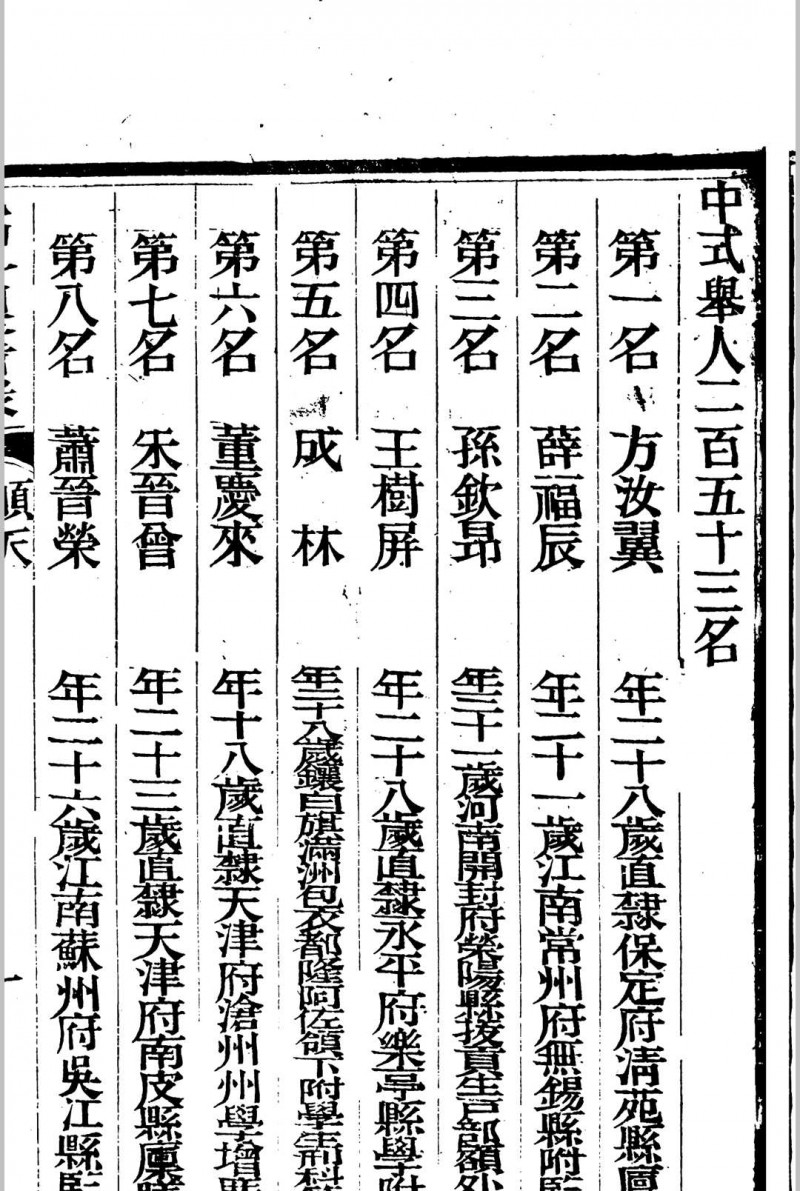 中式舉人二百五十三名
第一名 方汝翼 年二十八歲直隸保定府清苑縣廩
第二名 薛福辰 年二十一歲江南常州府無錫縣附監
第三名 孫欽昂 年三十一歲河南開封府滎陽縣拔貢生戶部額外
第四名 王樹屏 年二十八歲直隸永平府樂亭縣學附
第五名 成林 年二十八歲鑲白旗滿洲包衣都隆阿佐領下附學生
第六名 董慶來 年十八歲直隸天津府滄州州學增
第七名 朱晉曾 年二十三歲直隸天津府南皮縣廩
第八名 蕭晉榮 年二十六歲江南蘇州府吳江縣監
順天
一